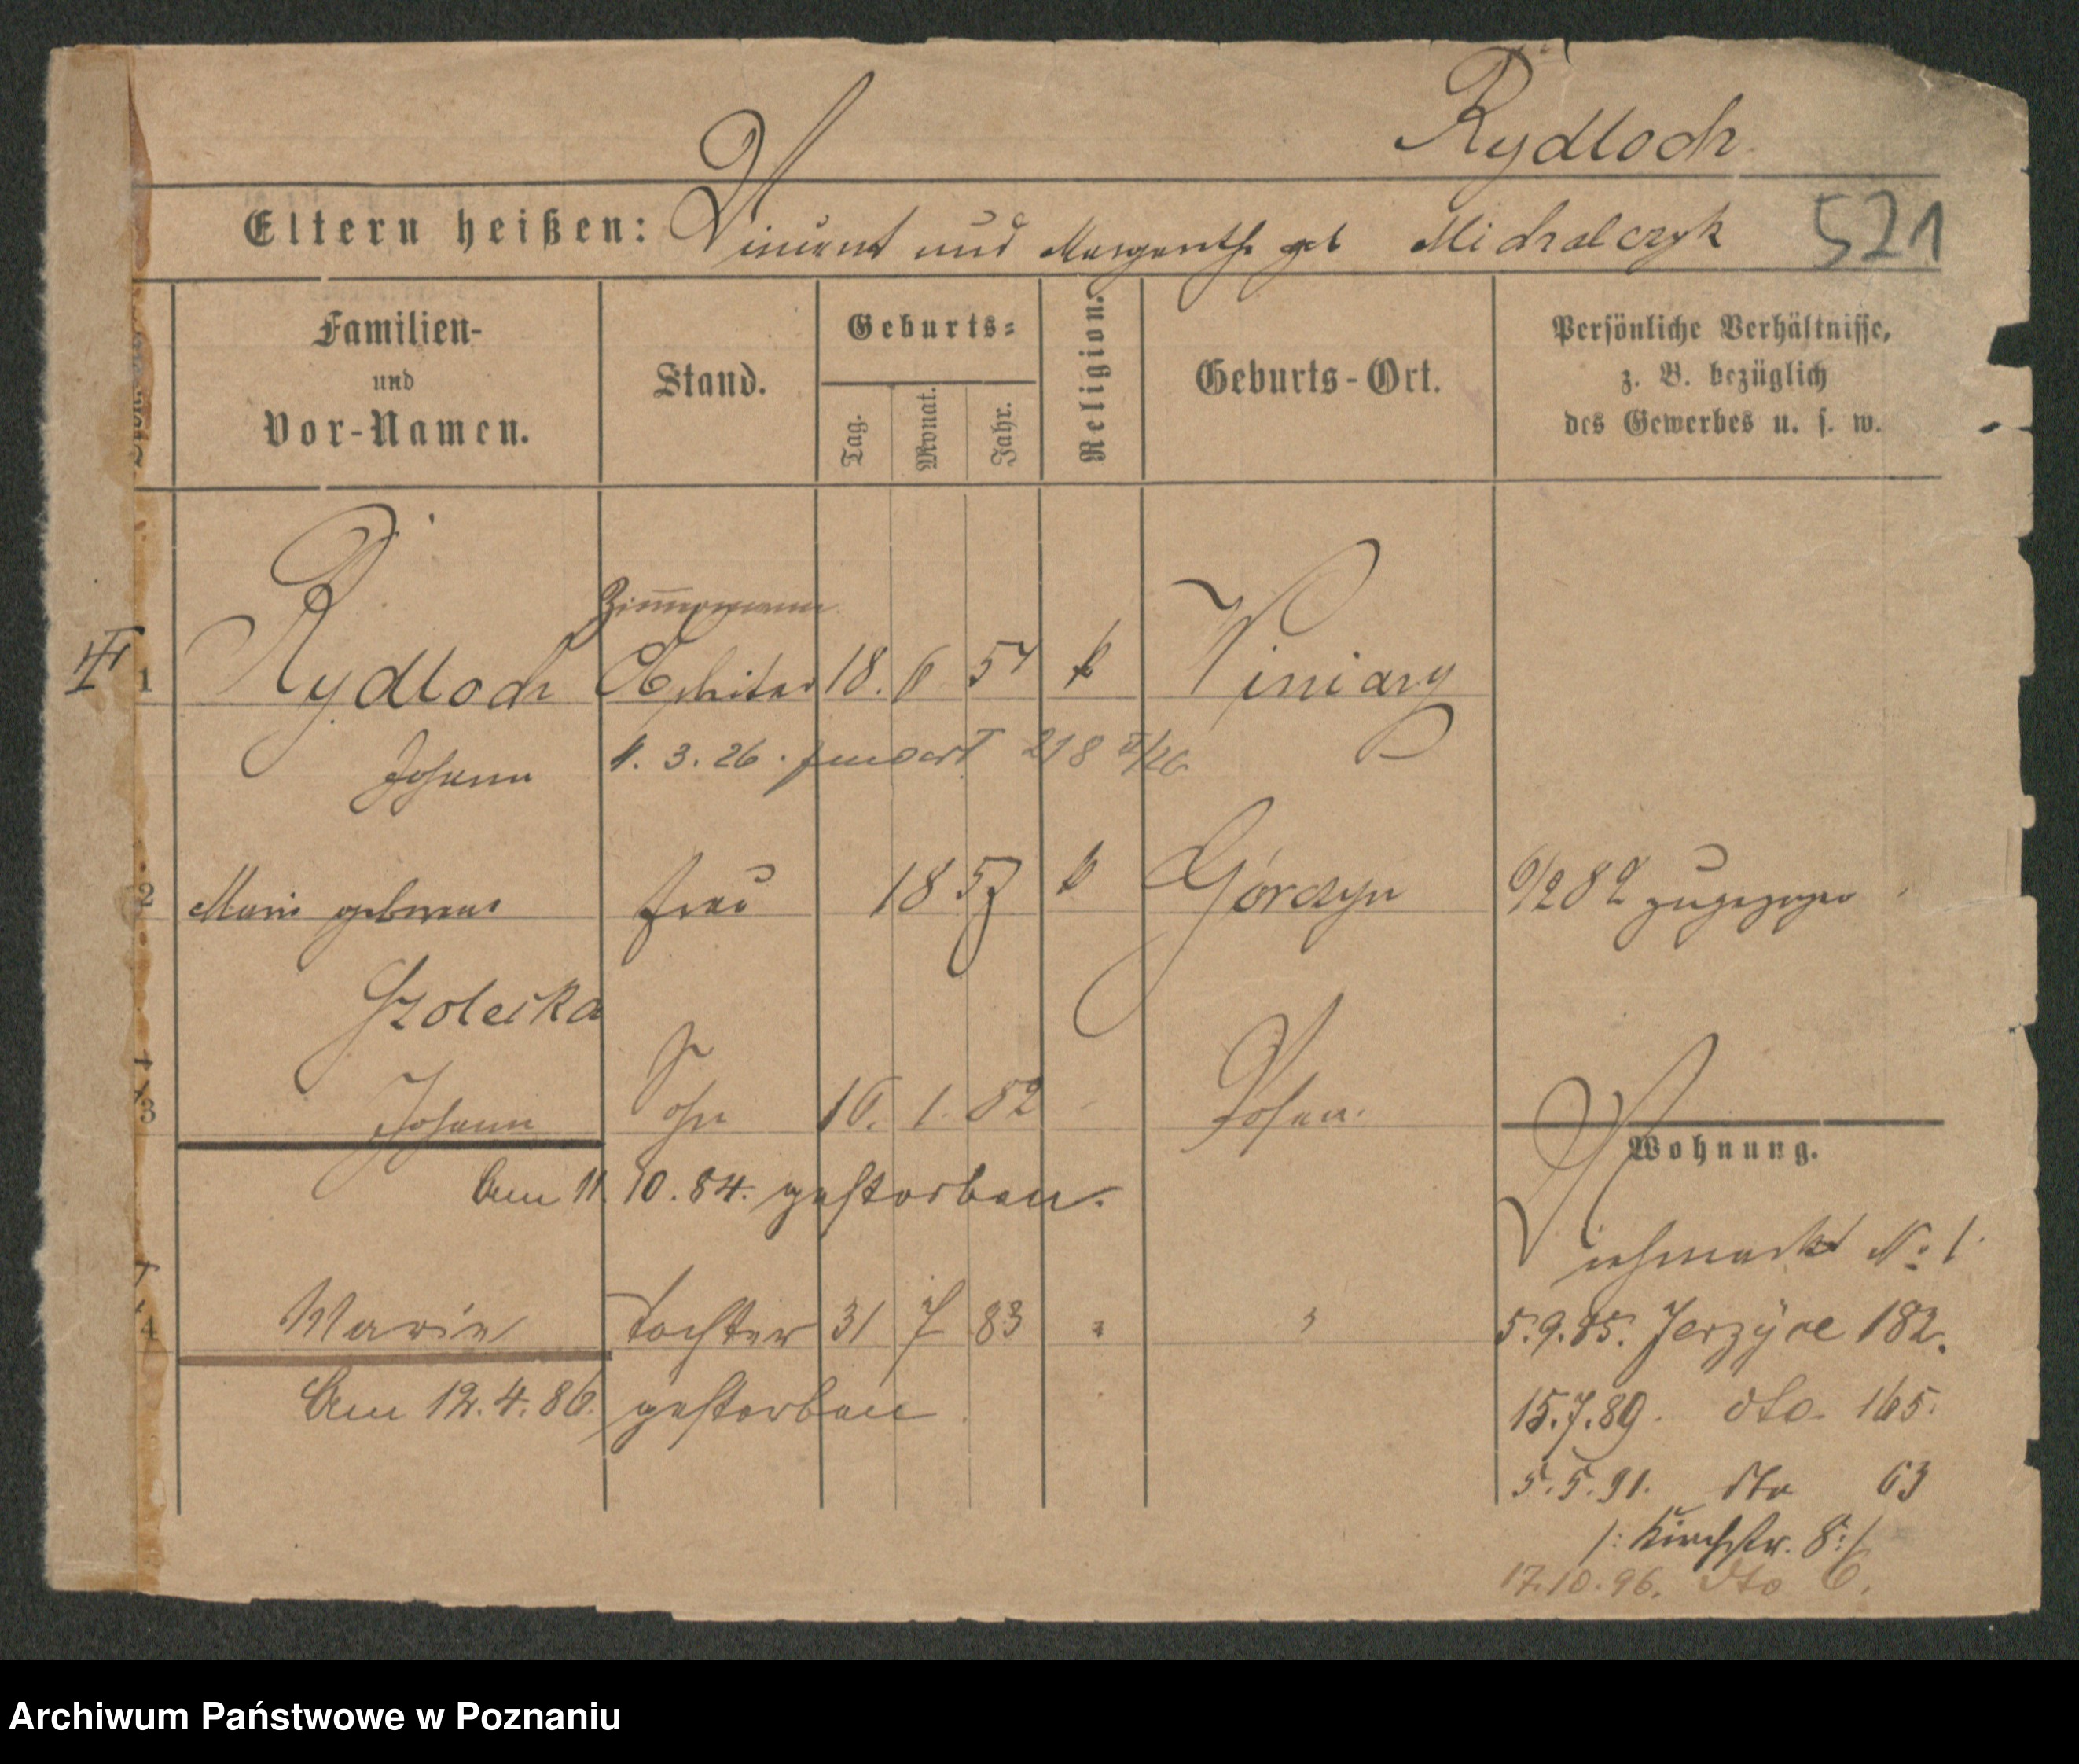 Rydloch
Eltern heißen: Vincent und Margareth geb Michalczyk 521
Familien-
und
Vor-Namen.
Stand.
Geburts-
Tag.
Monat.
Jahr.
Religion.
Geburts-Ort.
Persönliche Verhältnisse,
z. B. bezüglich
des Gewerbes u. s. w.
Zimmermann
1 Rydloch Arbeiter 18. 6 54 k Winiary
Johann 4. 3. 26. 218
2 Marie geborene Frau 1857 k Górczyn 6/2 82 zugezogen
Szolecka
3 Johann Sohn 16. 1. 82 Posen.
Am 11. 10. 84. gestorben.
Wohnung.
Viehmarkt No. 1.
4 Marie Tochter 31 7 83 " "
5.9.85. Jerzyce 182.
Am 12.4.86. gestorben.
15.7.89. dto 165.
5.5.91. dto 63
/: Kirchstr. 8:/
17.10.96. dto 6.
Archiwum Państwowe w Poznaniu